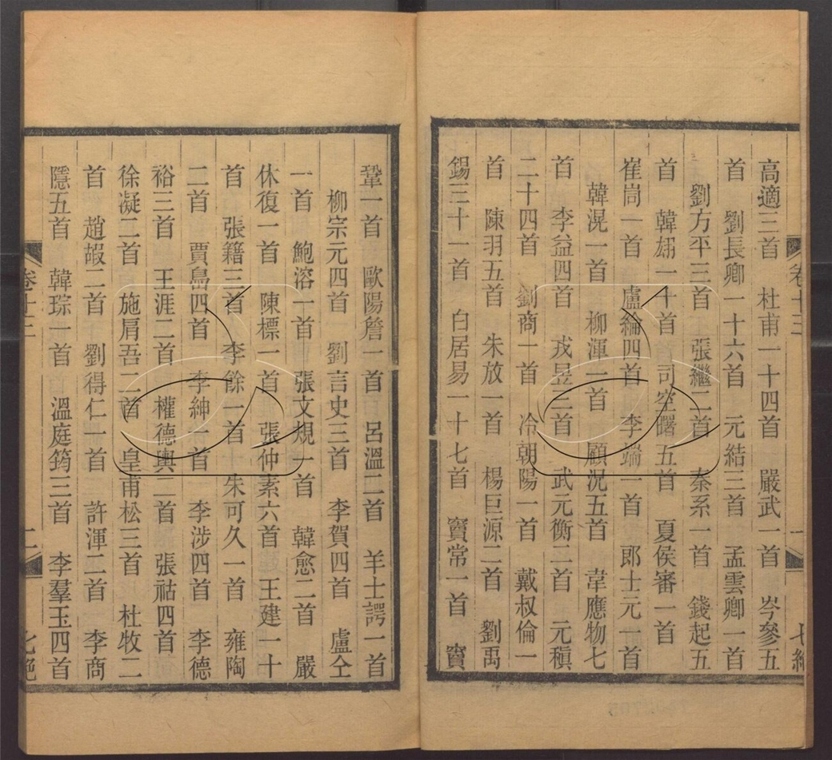 高適三首 杜甫一十四首 嚴武一首 岑參五
首 劉長卿一十六首 元結三首 孟雲卿一首
劉方平三首 張繼二首 秦系一首 錢起五
首 韓翃一十首 司空曙五首 夏侯審一首
崔峒一首 盧綸四首 李端一首 郎士元一首
韓滉一首 柳渾一首 顧況五首 韋應物七
首 李益四首 戎昱三首 武元衡二首 元稹
二十四首 劉商一首 冷朝陽一首 戴叔倫一
首 陳羽五首 朱放一首 楊巨源二首 劉禹
錫三十一首 白居易一十七首 竇常一首 竇
鞏一首 歐陽詹一首 呂溫二首 羊士諤一首
柳宗元四首 劉言史三首 李賀四首 盧仝
一首 鮑溶一首 張文規一首 韓愈二首 嚴
休復一首 陳標一首 張仲素六首 王建一十
首 張籍三首 李餘一首 朱可久一首 雍陶
二首 賈島四首 李紳一首 李涉四首 李德
裕三首 王涯二首 權德輿二首 張祜四首
徐凝二首 施肩吾二首 皇甫松三首 杜牧二
首 趙嘏二首 劉得仁一首 許渾二首 李商
隱五首 韓琮一首 溫庭筠三首 李羣玉四首
卷十三 二 七絕